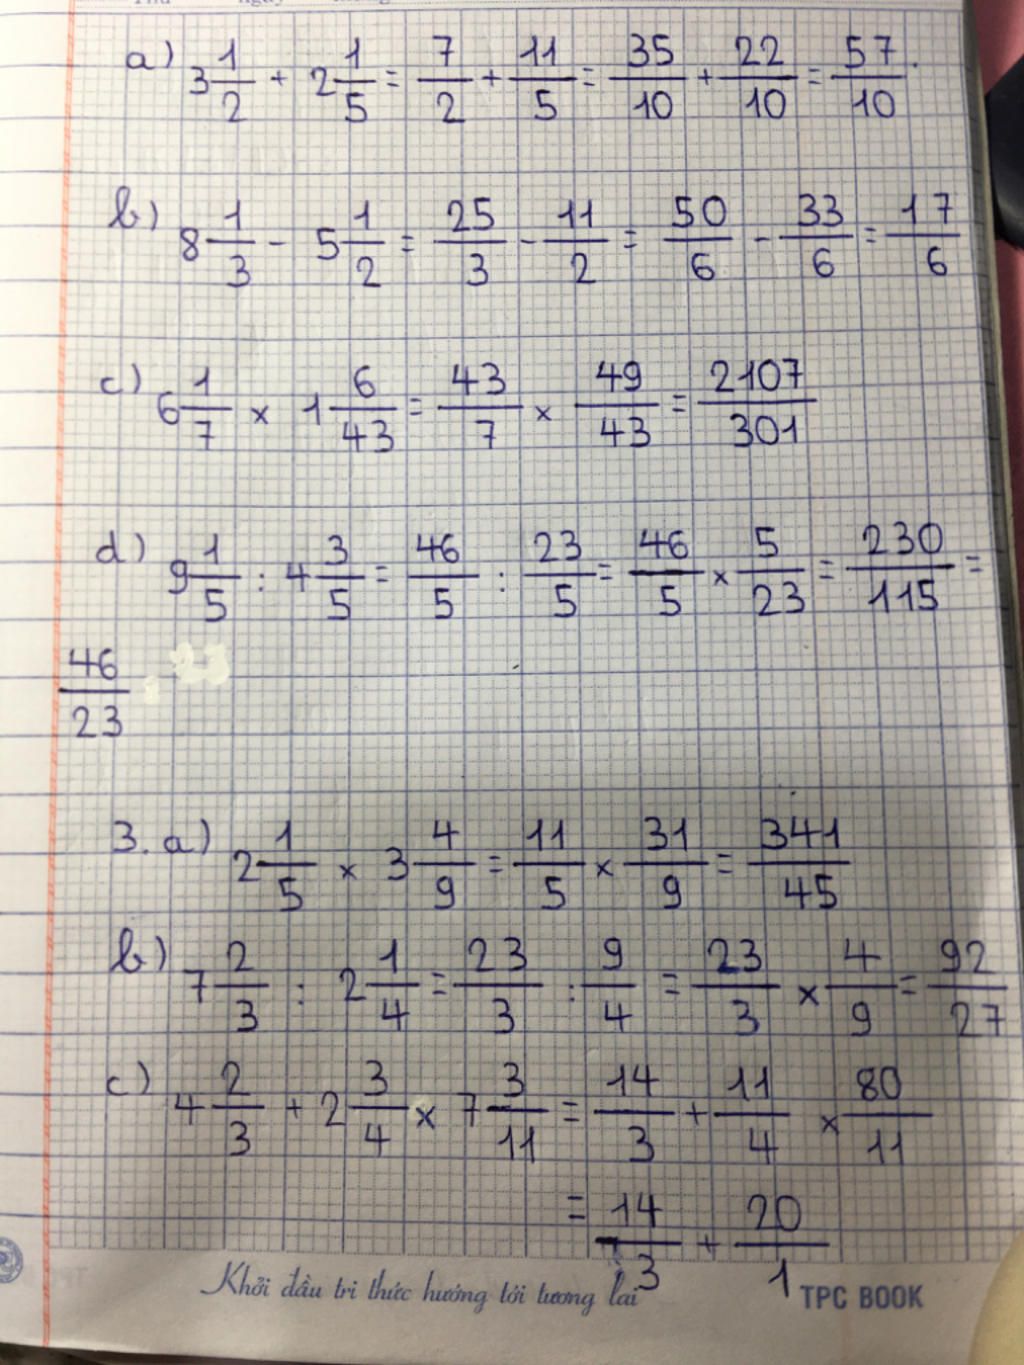 a) 3 1/2 + 2 1/5 = 7/2 + 11/5 = 35/10 + 22/10 = 57/10.
b) 8 1/3 - 5 1/2 = 25/3 - 11/2 = 50/6 - 33/6 = 17/6
c) 6 1/7 x 1 6/43 = 43/7 x 49/43 = 2107/301
d) 9 1/5 : 4 3/5 = 46/5 : 23/5 = 46/5 x 5/23 = 230/115 =
46/23
3. a) 2 1/5 x 3 4/9 = 11/5 x 31/9 = 341/45
b) 7 2/3 : 2 1/4 = 23/3 : 9/4 = 23/3 x 4/9 = 92/27
c) 4 2/3 + 2 3/4 x 7 3/11 = 14/3 + 11/4 x 80/11
= 14/3 + 20/1
Khởi đầu tri thức hướng tới tương lai
TPC BOOK